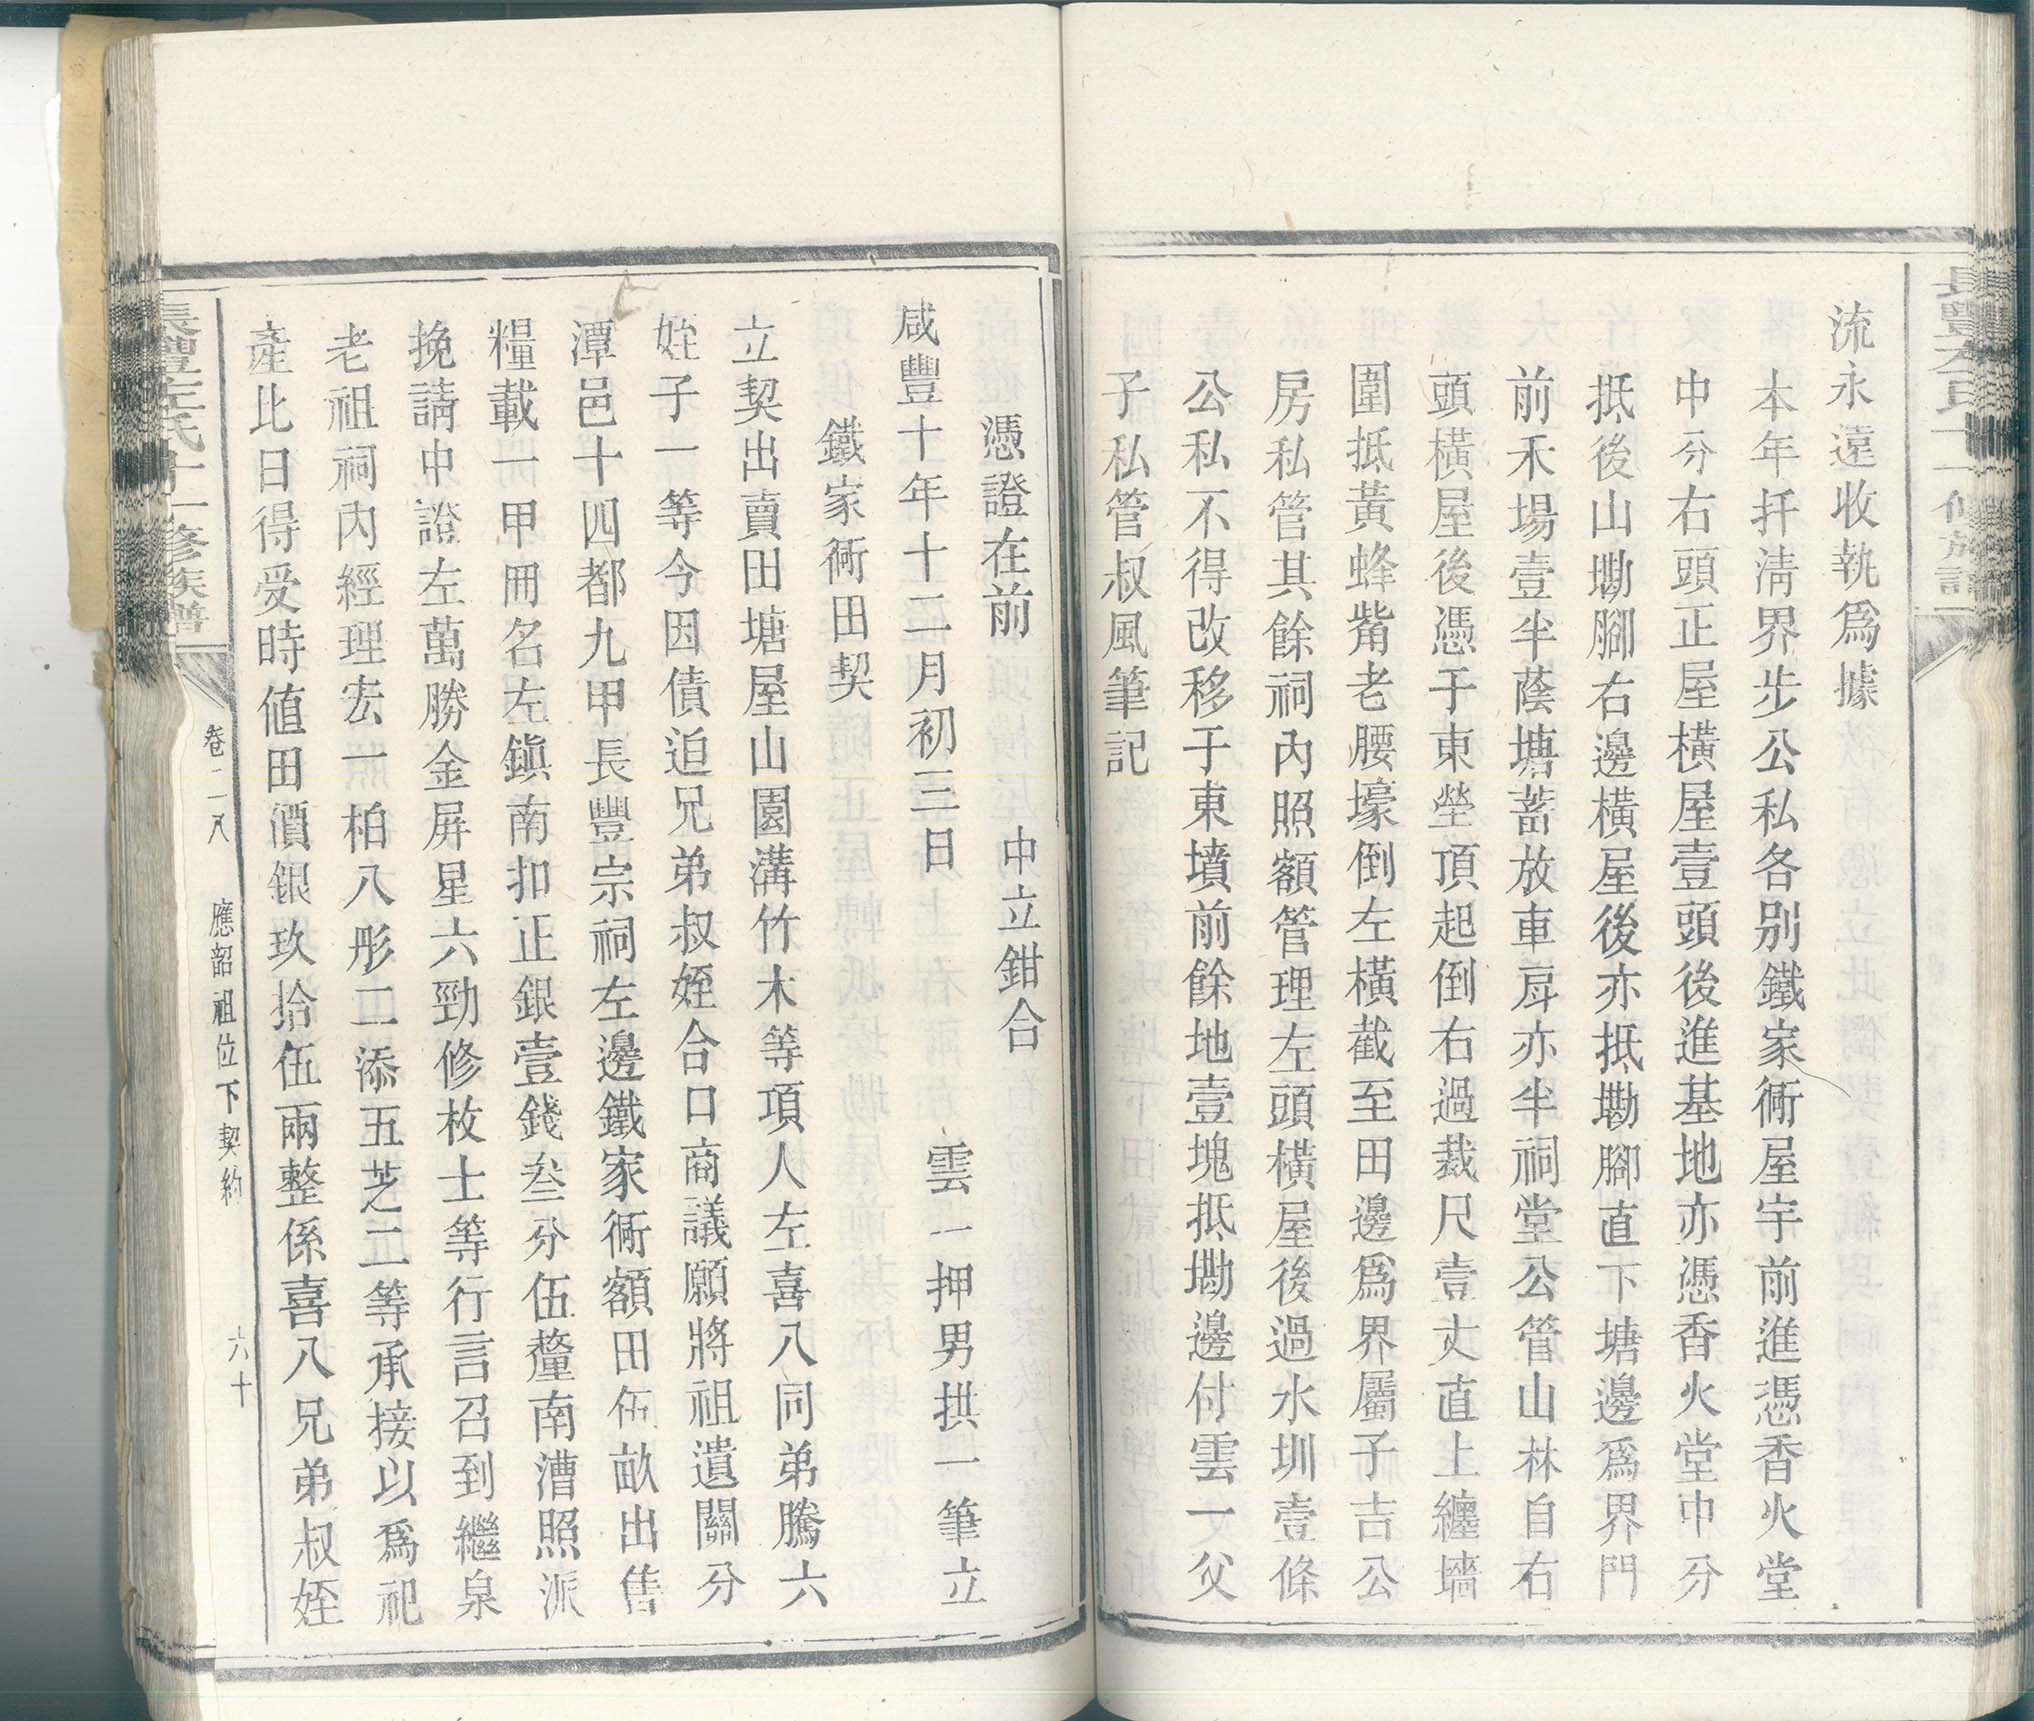 流永遠收執爲據
本年扦淸界步公私各別鐵家衕屋宇前進憑香火堂
中分右頭正屋橫屋壹頭後進基地亦憑香火堂中分
抵後山墈腳右邊橫屋後亦抵墈腳直下塘邊爲界門
前禾場壹半蔭塘蓄放車戽亦半祠堂公管山林自右
頭橫屋後憑于東塋頂起倒右過裁尺壹丈直上纏墻
圍抵黃蜂觜老腰壕倒左橫截至田邊爲界屬子吉公
房私管其餘祠內照額管理左頭橫屋後過水圳壹條
公私不得改移于東墳前餘地壹塊抵墈邊付雲一父
子私管叔風筆記
憑證在前　中立鉗合
咸豐十年十二月初三日　雲一押男拱一筆立
鐵家衕田契
立契出賣田塘屋山園溝竹木等項人左喜八同弟騰六
姪子一等今因債迫兄弟叔姪合口商議願將祖遺關分
潭邑十四都九甲長豐宗祠左邊鐵家衕額田伍畝出售
糧載一甲冊名左鎭南扣正銀壹錢叁分伍釐南漕照派
挽請中證左萬勝金屏星六勁修枚士等行言召到繼泉
老祖祠內經理宏一柏八彤二添五芝二等承接以爲祀
產比日得受時値田價銀玖拾伍兩整係喜八兄弟叔姪
長豐左氏十一修族譜　卷二八　應韶祖位下契約　六十